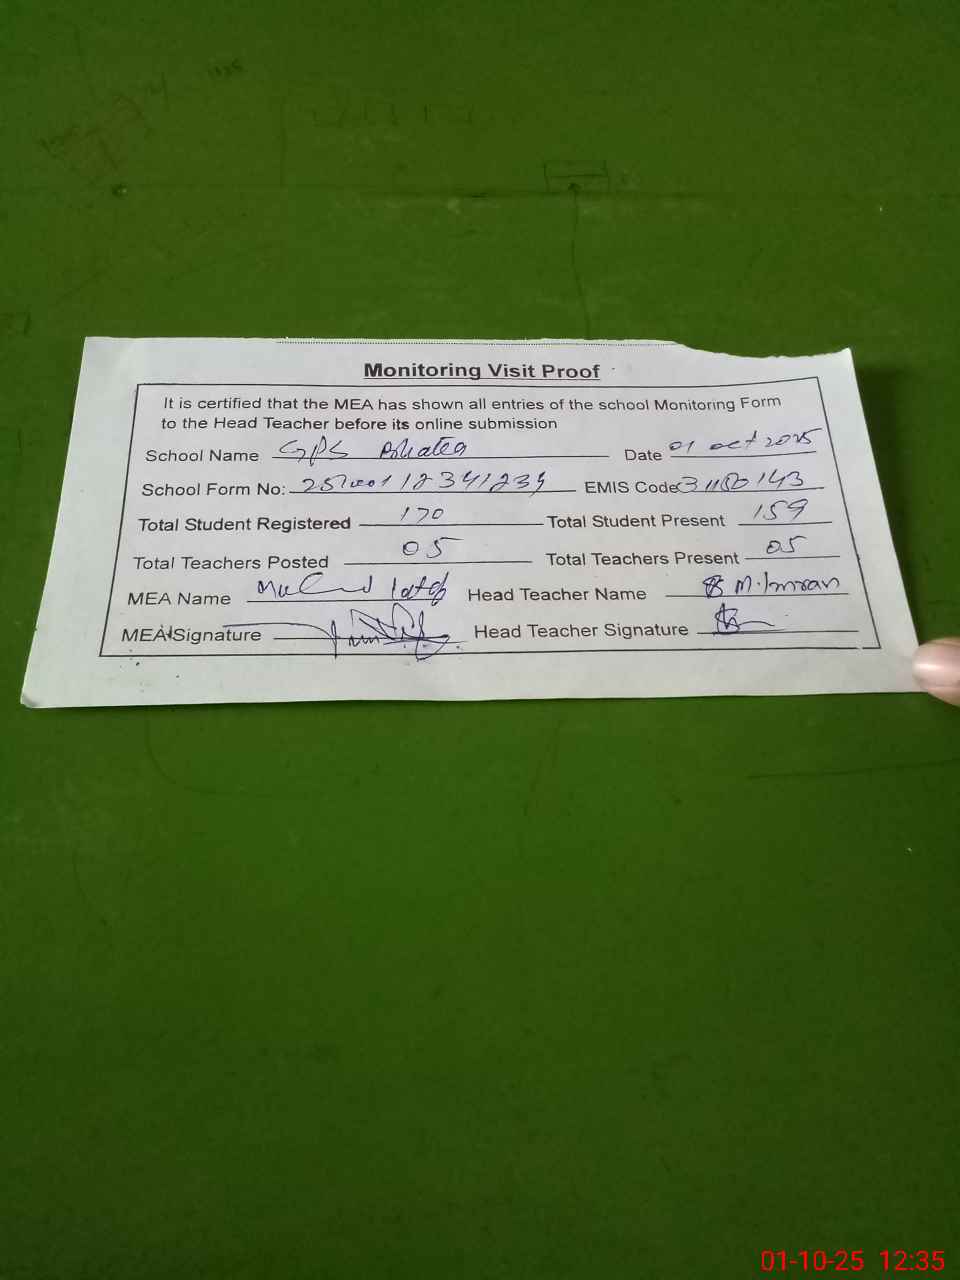 Monitoring Visit Proof
It is certified that the MEA has shown all entries of the school Monitoring Form
to the Head Teacher before its online submission
School Name GPS Date 01 oct 2025
School Form No: EMIS Code 31180143
Total Student Registered 170 Total Student Present 159
Total Teachers Posted 05 Total Teachers Present 05
MEA Name Head Teacher Name M. Imran
MEA Signature Head Teacher Signature
01-10-25 12:35